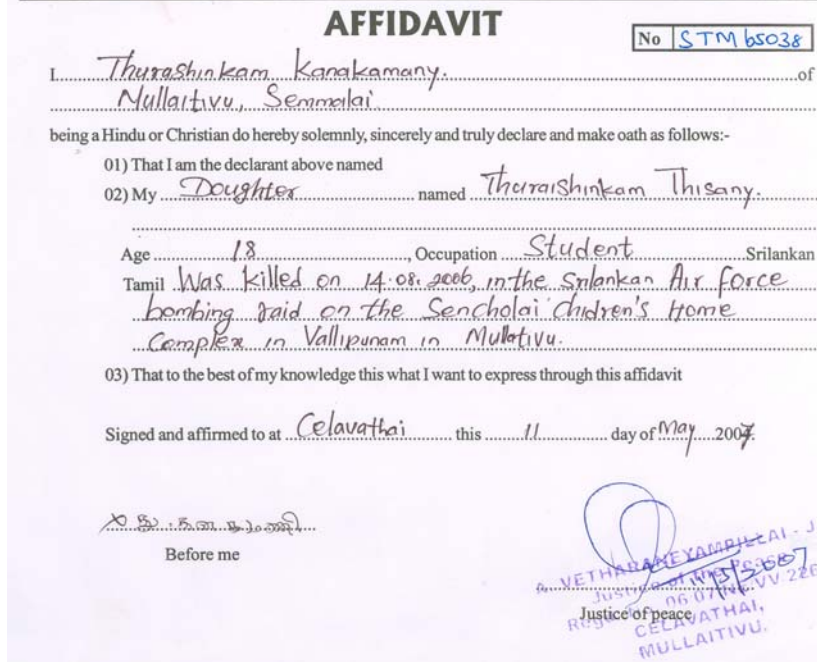 AFFIDAVIT
No STM 65038
I Thurashinkam Kanakamany. of
Mullaitivu, Semmalai
being a Hindu or Christian do hereby solemnly, sincerely and truly declare and make oath as follows:-
01) That I am the declarant above named
02) My Doughter named Thuraishinkam Thisany.
Age 18, Occupation Student Srilankan
Tamil Was killed on 14.08.2006, in the Srilankan Air force
bombing raid on the Sencholai Chidren's Home
Complex in Vallipunam in Mullativu.
03) That to the best of my knowledge this what I want to express through this affidavit
Signed and affirmed to at Celavathai this 11 day of May 2007.
Before me
A. VETHARANEYAMPILLAI - J
Justice of the Peace
11/5/2007
Justice of peace
CELAVATHAI,
MULLAITIVU.